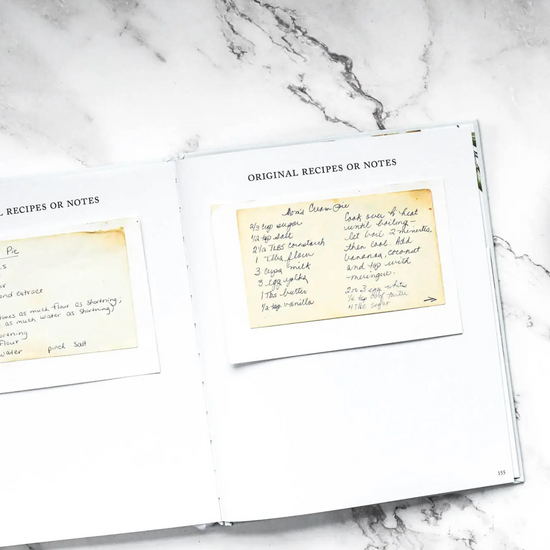 L RECIPES OR NOTES
Pie
and extract
times as much flour as shortning,
as much water as shortning)
flour
water pinch salt
ORIGINAL RECIPES OR NOTES
Mom's Cream Pie
2/3 cup sugar
1/2 tsp salt
2 1/2 TBS cornstarch
1 Tbs flour
3 cups milk
3 egg yolks
1 Tbs butter
1/2 tsp vanilla
Cook over h heat
until boiling -
let boil 2 minutes,
then cool. Add
bananas, coconut
and top with
meringue.
2 or 3 egg whites
1/4 tsp
4 TBS sugar
155